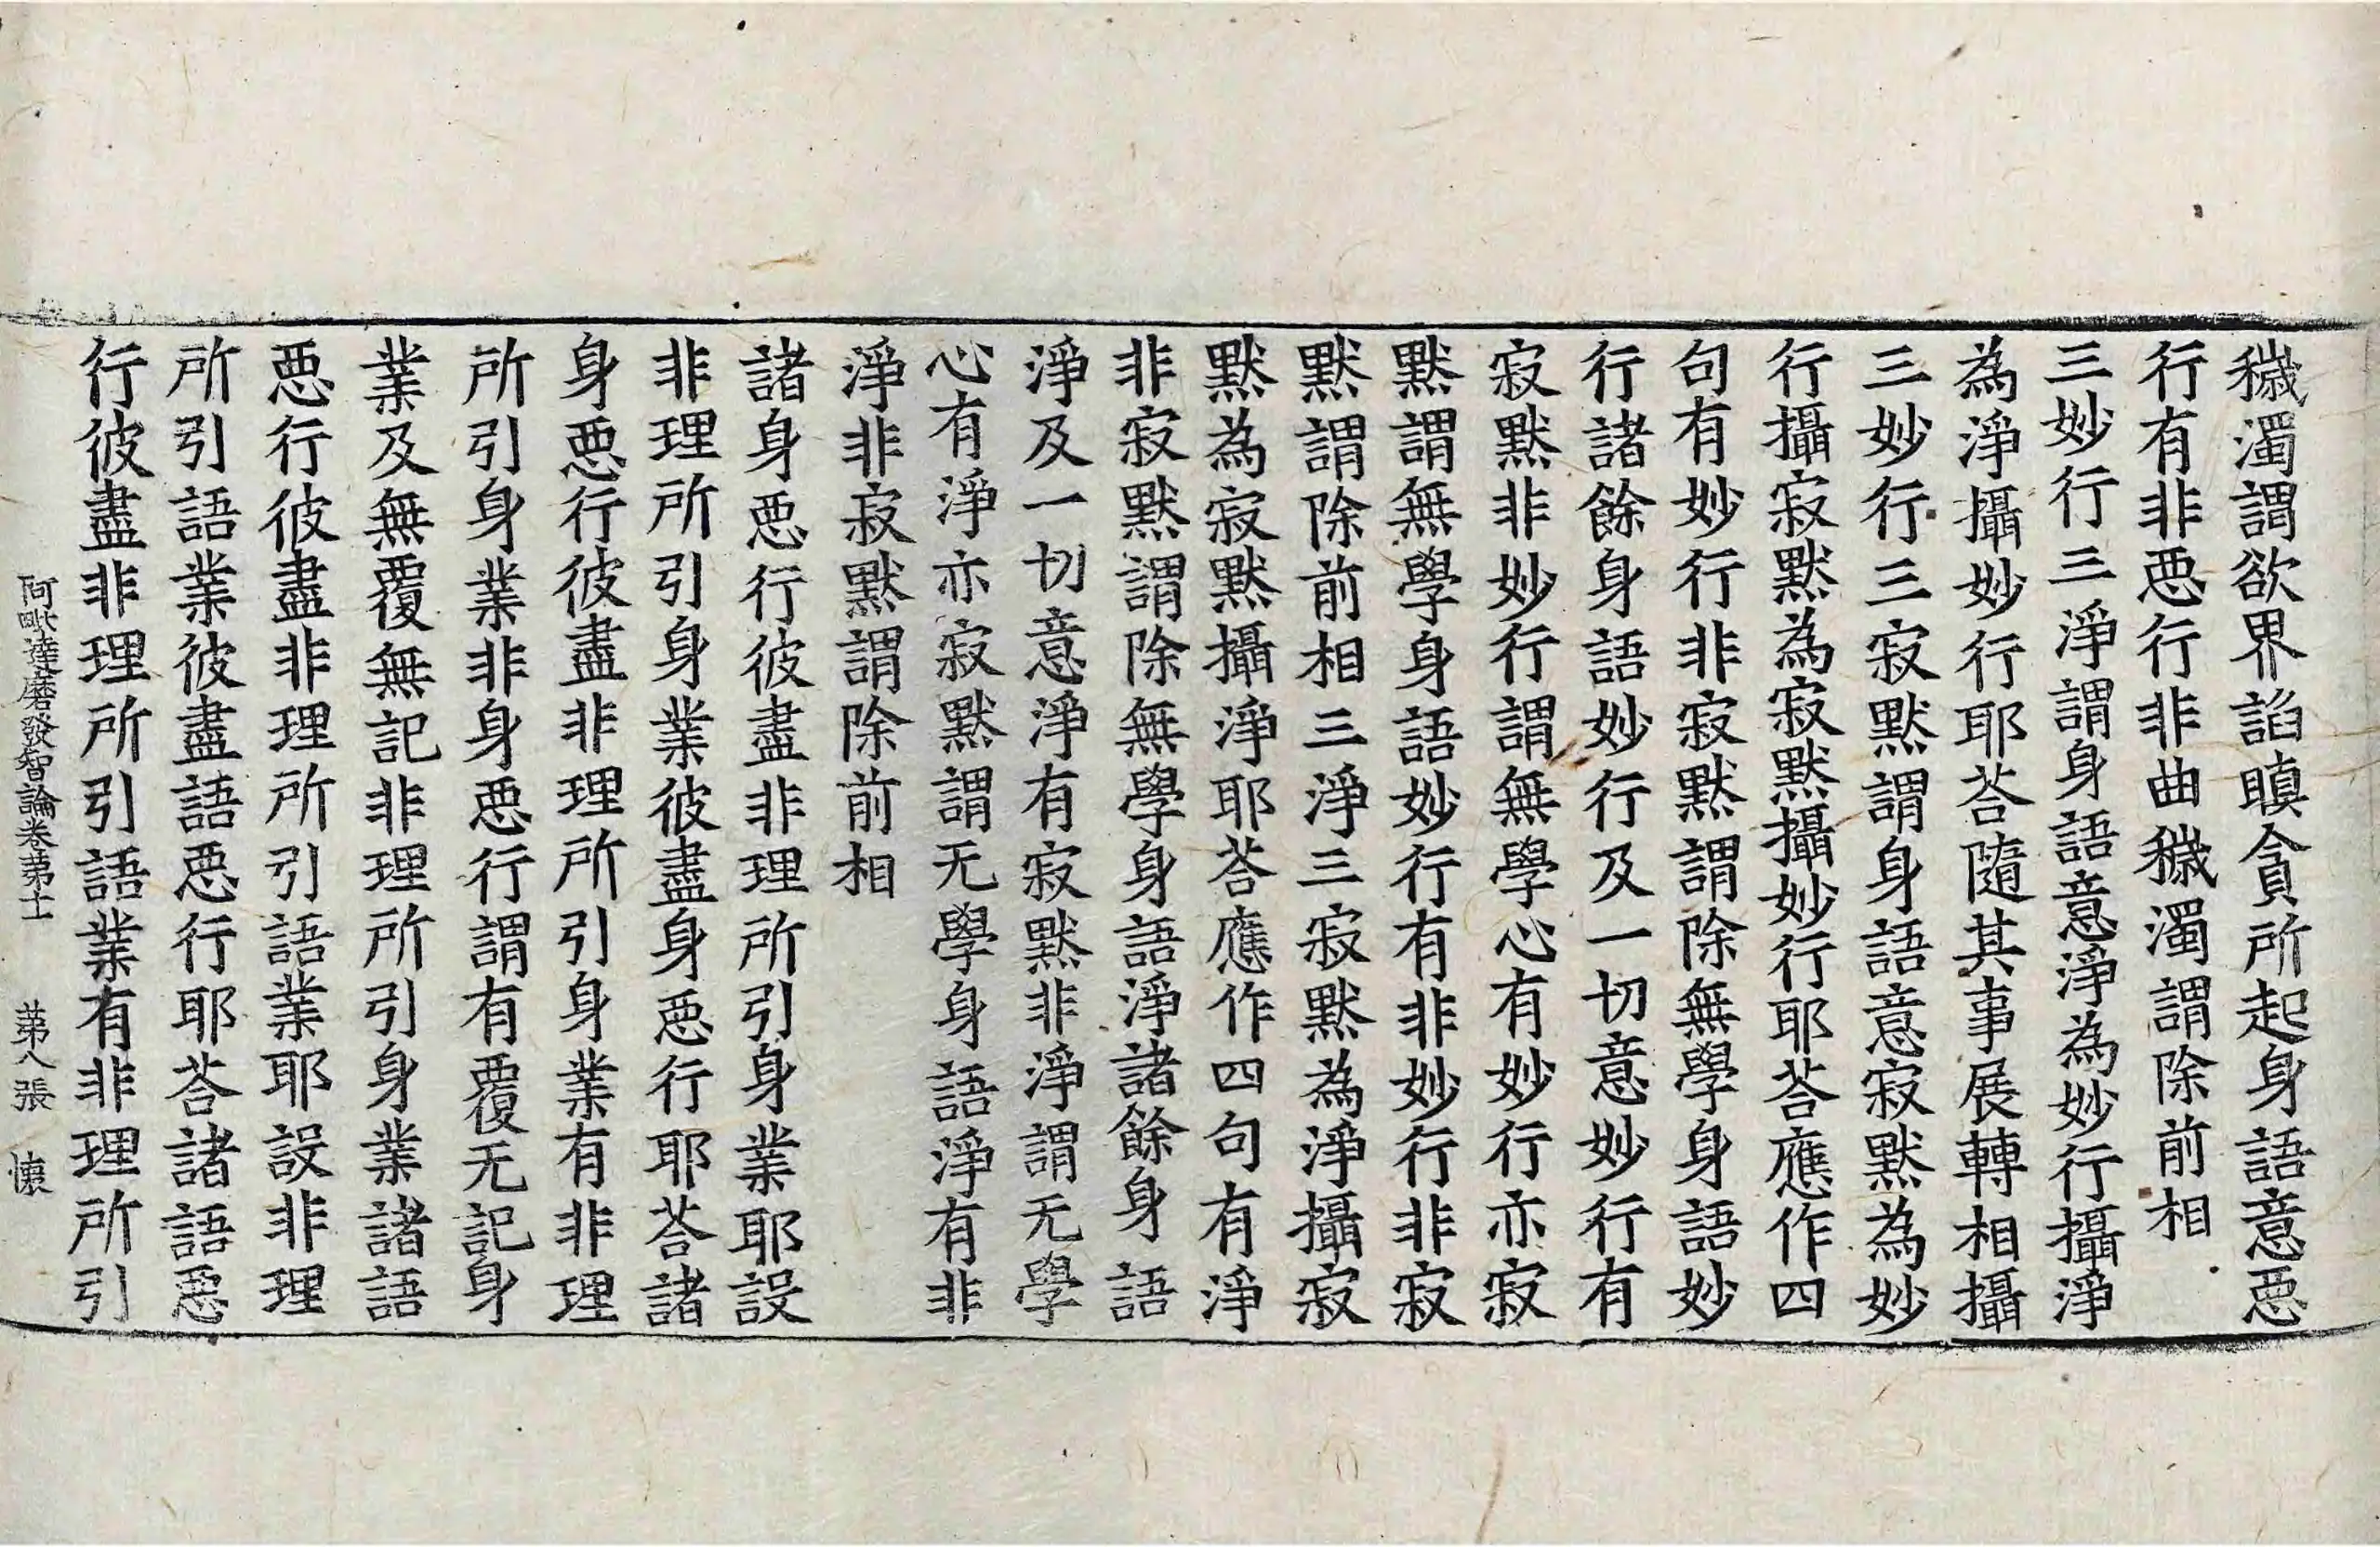 穢濁謂欲界諂瞋貪所起身語意悪
行有非悪行非曲穢濁謂除前相
三妙行三淨謂身語意淨為妙行攝淨
為淨攝妙行耶荅隨其事展轉相攝
三妙行三寂默謂身語意寂默為妙
行攝寂默為寂默攝妙行耶荅應作四
句有妙行非寂默謂除無學身語妙
行諸餘身語妙行及一切意妙行有
寂默非妙行謂無學心有妙行亦寂
默謂無學身語妙行有非妙行非寂
默謂除前相三淨三寂默為淨攝寂
默為寂默攝淨耶荅應作四句有淨
非寂默謂除無學身語淨諸餘身語
淨及一切意淨有寂默非淨謂无學
心有淨亦寂默謂无學身語淨有非
淨非寂默謂除前相
諸身悪行彼盡非理所引身業耶設
非理所引身業彼盡身悪行耶荅諸
身悪行彼盡非理所引身業有非理
所引身業非身悪行謂有覆无記身
業及無覆無記非理所引身業諸語
悪行彼盡非理所引語業耶設非理
所引語業彼盡語悪行耶荅諸語悪
行彼盡非理所引語業有非理所引
阿毗達磨發智論卷苐十一 苐八張 懐